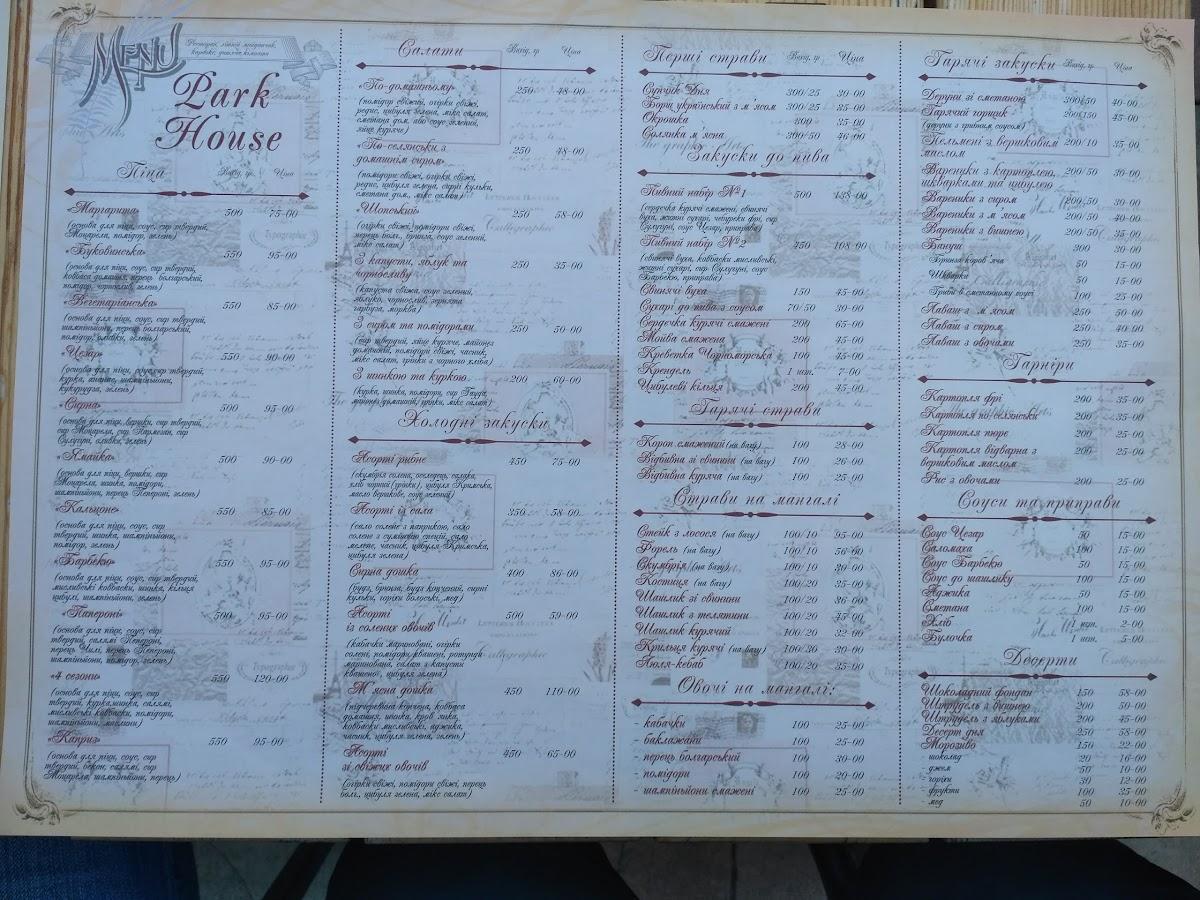 MENU
Park
House
Піца Вихід, гр Ціна
«Маргарита» 500 75-00
(основа для піци, соус, сир твердий,
Моцарела, помідор, зелень)
«Буковинська» 550 95-00
(основа для піци, соус, сир твердий,
ковбаси домашня, перець болгарський,
помідор, часник, зелень)
«Вегетаріанська» 550 85-00
(основа для піци, соус, сир твердий,
шампіньйони, перець болгарський,
помідор, оливки, зелень)
«Цезар» 550 90-00
(основа для піци, соус, сир твердий,
курка, ананас, шампіньйони,
кукурудза, зелень)
«Сирна» 500 95-00
(основа для піци, вершки, сир твердий,
сир Моцарела, сир Пармезан, сир
Сулугуні, оливки, зелень)
«Ямайка» 500 90-00
(основа для піци, вершки, сир
Моцарела, шинка, помідори,
шампіньйони, перець Пепероні, зелень)
«Кальцоне» 550 85-00
(основа для піци, соус, сир
твердий, шинка, шампіньйони,
помідор, зелень)
«Барбекю» 550 95-00
(основа для піци, соус, сир твердий,
мисливські ковбаски, шинка, кільця
цибулі, шампіньйони, зелень)
«Папероні» 500 95-00
(основа для піци, соус, сир
твердий, салямі Пепероні,
перець Чилі, перець Пепероні,
шампіньйони, помідор, зелень)
«4 сезони» 550 120-00
(основа для піци, соус, сир
твердий, курка, шинка, салямі,
мисливські ковбаски, помідори,
шампіньйони, маслини)
«Каприз» 550 95-00
(основа для піци, соус, сир
твердий, бекон, салямі, сир
Моцарела, шампіньйони, перець)
Салати Вихід, гр Ціна
«По-домашньому» 250 48-00
(помідор свіжий, огірки свіжі,
редис, цибуля зелена, мікс салат,
сметана дом. або соус зелений,
яйце куряче)
«По-селянськи з 250 48-00
домашнім сиром»
(помідори свіжі, огірки свіжі,
редис, цибуля зелена, сирні кульки,
сметана дом., мікс салат)
«Шопський» 250 58-00
(огірки свіжі, помідори свіжі,
перець бол., бринза, соус зелений,
мікс салат)
З капусти, яблук та 250 35-00
чорносливу
(капуста свіжа, соус зелений,
яблуко, чорнослив, зернята
гарбуза, морква)
З сиром та помідорами 250 50-00
(сир твердий, яйце куряче, майонез
домашній, помідори свіжі, часник,
мікс салат, грінки з чорного хліба)
З шинкою та куркою 200 60-00
(курка, шинка, помідори, сир Гауда,
майонез домашній, грінки, мікс салат)
Холодні закуски
Асорті рибне 450 75-00
(скумбрія солена, оселедець, салака,
хліб чорний (грінки), цибуля Кримська,
масло вершкове, соус зелений)
Асорті із сала 350 58-00
(сало солене з паприкою, сало
солене з сумішшю спецій, сало
мелене, часник, цибуля Кримська,
цибуля зелена)
Сирна дошка 400 86-00
(вурда, бринза, будз копчений, сирні
кульки, горіхи волоські, мед)
Асорті 500 59-00
із солених овочів
(кабачки мариновані, огірки
солені, помідори квашені, ротунда
маринована, салат з капусти
квашеної, цибуля зелена)
М'ясна дошка 450 110-00
Асорті 450 65-00
зі свіжих овочів
(огірки свіжі, помідори свіжі, перець
бол., цибуля зелена, мікс салат)
Перші страви Вихід, гр Ціна
Супчик Дня 300/25 30-00
Борщ український з м'ясом 300/25 35-00
Окрошка 300 35-00
Солянка м'ясна 300/50 46-00
Закуски до пива
Пивний набір №1 500 138-00
(сердечка курячі смажені, свинячі
вуха, житні сухарі, чебуреки фрі, сир
Сулугуні, соус Цезар, приправа)
Пивний набір №2 450 108-00
(свинячі вуха, ковбаски мисливські,
житні сухарі, сир Сулугуні, соус
Барбекю, приправа)
Свинячі вуха 150 45-00
Сухарі до пива з соусом 70/50 30-00
Сердечка курячі смажені 200 65-00
Мойва смажена 200 45-00
Креветка Чорноморська 100 45-00
Крендель 1 шт. 7-00
Цибулеві кільця 200 45-00
Гарячі страви
Короп смажений (на вагу) 100 28-00
Відбивна зі свинини (на вагу) 100 26-00
Відбивна куряча (на вагу) 100 25-00
Страви на мангалі
Стейк з лосося (на вагу) 100/10 95-00
Форель (на вагу) 100/10 56-00
Скумбрія (на вагу) 100/10 30-00
Костиця (на вагу) 100/20 35-00
Шашлик зі свинини 100/20 36-00
Шашлик з телятини 100/20 45-00
Шашлик курячий 100/20 32-00
Крильця курячі (на вагу) 100/30 30-00
Люля-кебаб 100/20 35-00
Овочі на мангалі:
- кабачки 100 25-00
- баклажани 100 25-00
- перець болгарський 100 30-00
- помідори 100 20-00
- шампіньйони смажені 100 25-00
Гарячі закуски Вихід, гр Ціна
Деруни зі сметаною 300/50 40-00
Гарячий горщик 200/150 45-00
(деруни з грибним соусом)
Пельмені з вершковим 200/10 35-00
маслом
Вареники з картоплею, 200/50 30-00
шкварками та цибулею
Вареники з сиром 200/50 30-00
Вареники з м'ясом 200/50 40-00
Вареники з вишнею 200/50 35-00
Бануш 300 30-00
- Бринза коров'яча 50 15-00
- Шкварки 50 15-00
- Гриби в сметанному соусі 100 25-00
Лаваш з м'ясом 250 50-00
Лаваш з сиром 250 40-00
Лаваш з овочами 250 35-00
Гарніри
Картопля фрі 200 35-00
Картопля по-селянськи 200 35-00
Картопля пюре 200 25-00
Картопля відварна з 200 25-00
вершковим маслом
Рис з овочами 200 25-00
Соуси та приправи
Соус Цезар 50 15-00
Саломаха 100 15-00
Соус Барбекю 50 15-00
Соус до шашлику 100 15-00
Аджика 50 15-00
Сметана 100 15-00
Хліб 1 шт. 2-00
Булочка 1 шт. 5-00
Десерти
Шоколадний фондан 150 58-00
Штрудель з вишнею 200 50-00
Штрудель з яблуками 200 45-00
Десерт дня 250 58-00
Морозиво 150 22-00
- шоколад 20 16-00
- джем 50 10-00
- горіхи 30 12-00
- фрукти 100 35-00
- мед 50 10-00